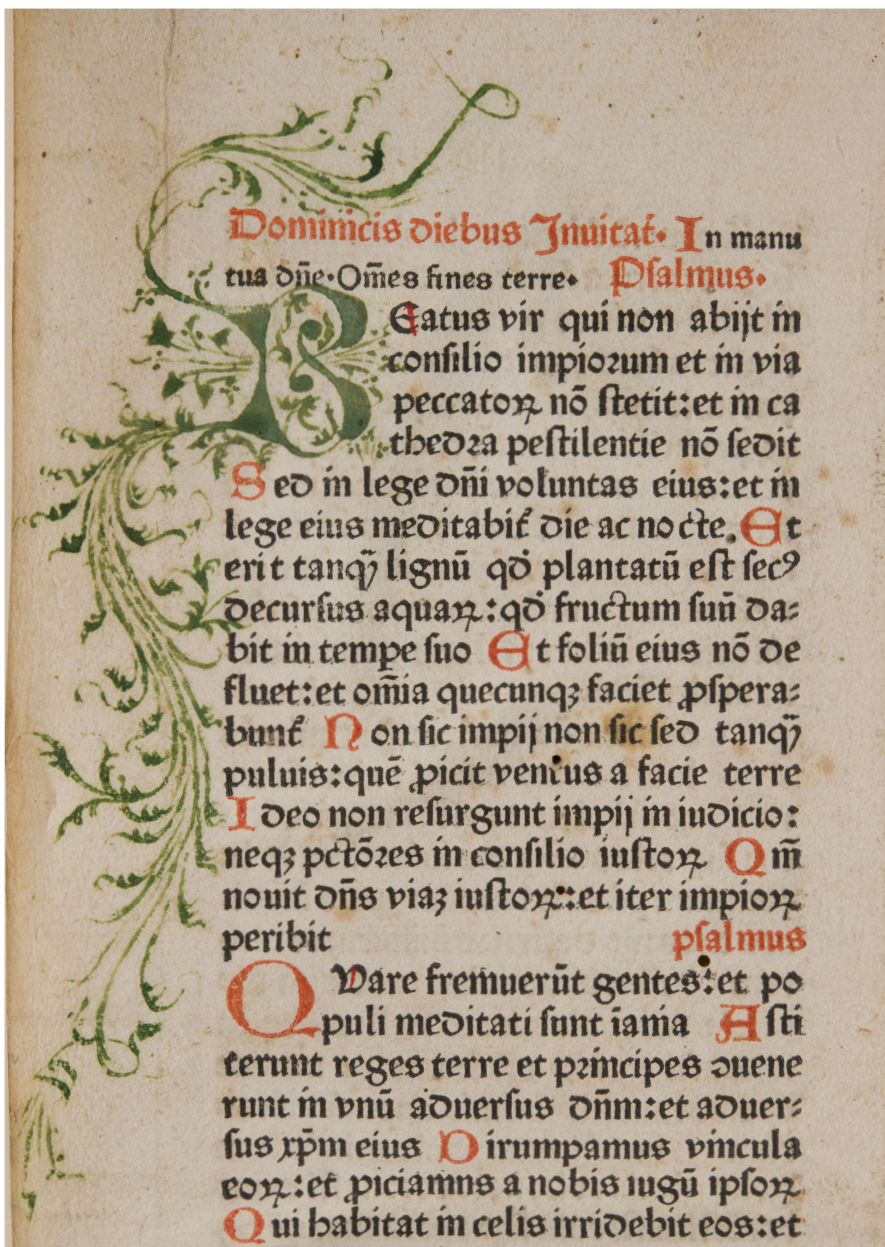 Dominicis diebus Inuitat̃. In manu
tua dn̄e. Om̄es fines terre. Psalmus.
BEatus vir qui non abijt in
consilio impiorum et in via
peccatoꝝ nō stetit: et in ca
thedra pestilentie nō sedit
Sed in lege dn̄i voluntas eius: et in
lege eius meditabit̃ die ac nocte. Et
erit tanqȝ lignū qđ plantatū est secꝰ
decursus aquaꝝ: qđ fructum suū da⸗
bit in temꝑe suo Et foliū eius nō de
fluet: et om̄ia quecunqꝫ faciet ꝓspera⸗
bunt̃ Non sic impij non sic sed tanqȝ
puluis: quē ꝓicit ventus a facie terre
Ideo non resurgunt impij in iudicio:
neqꝫ pctōres in consilio iustoꝝ Qm̄
nouit dn̄s viaꝫ iustoꝝ: et iter impioꝝ
peribit psalmus
QVare fremuerūt gentes: et po
puli meditati sunt īania Asti
terunt reges terre et principes ꝯuene
runt in vnū aduersus dn̄m: et aduer⸗
sus xp̄m eius Dirumpamus vincula
eoꝝ: et ꝓiciamns a nobis iugū ipsoꝝ
Qui habitat in celis irridebit eos: et